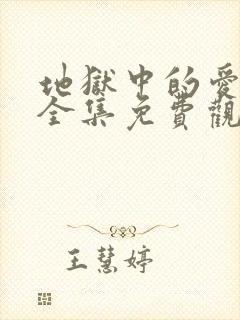 地獄中的愛
全集免費觀
王慧婷